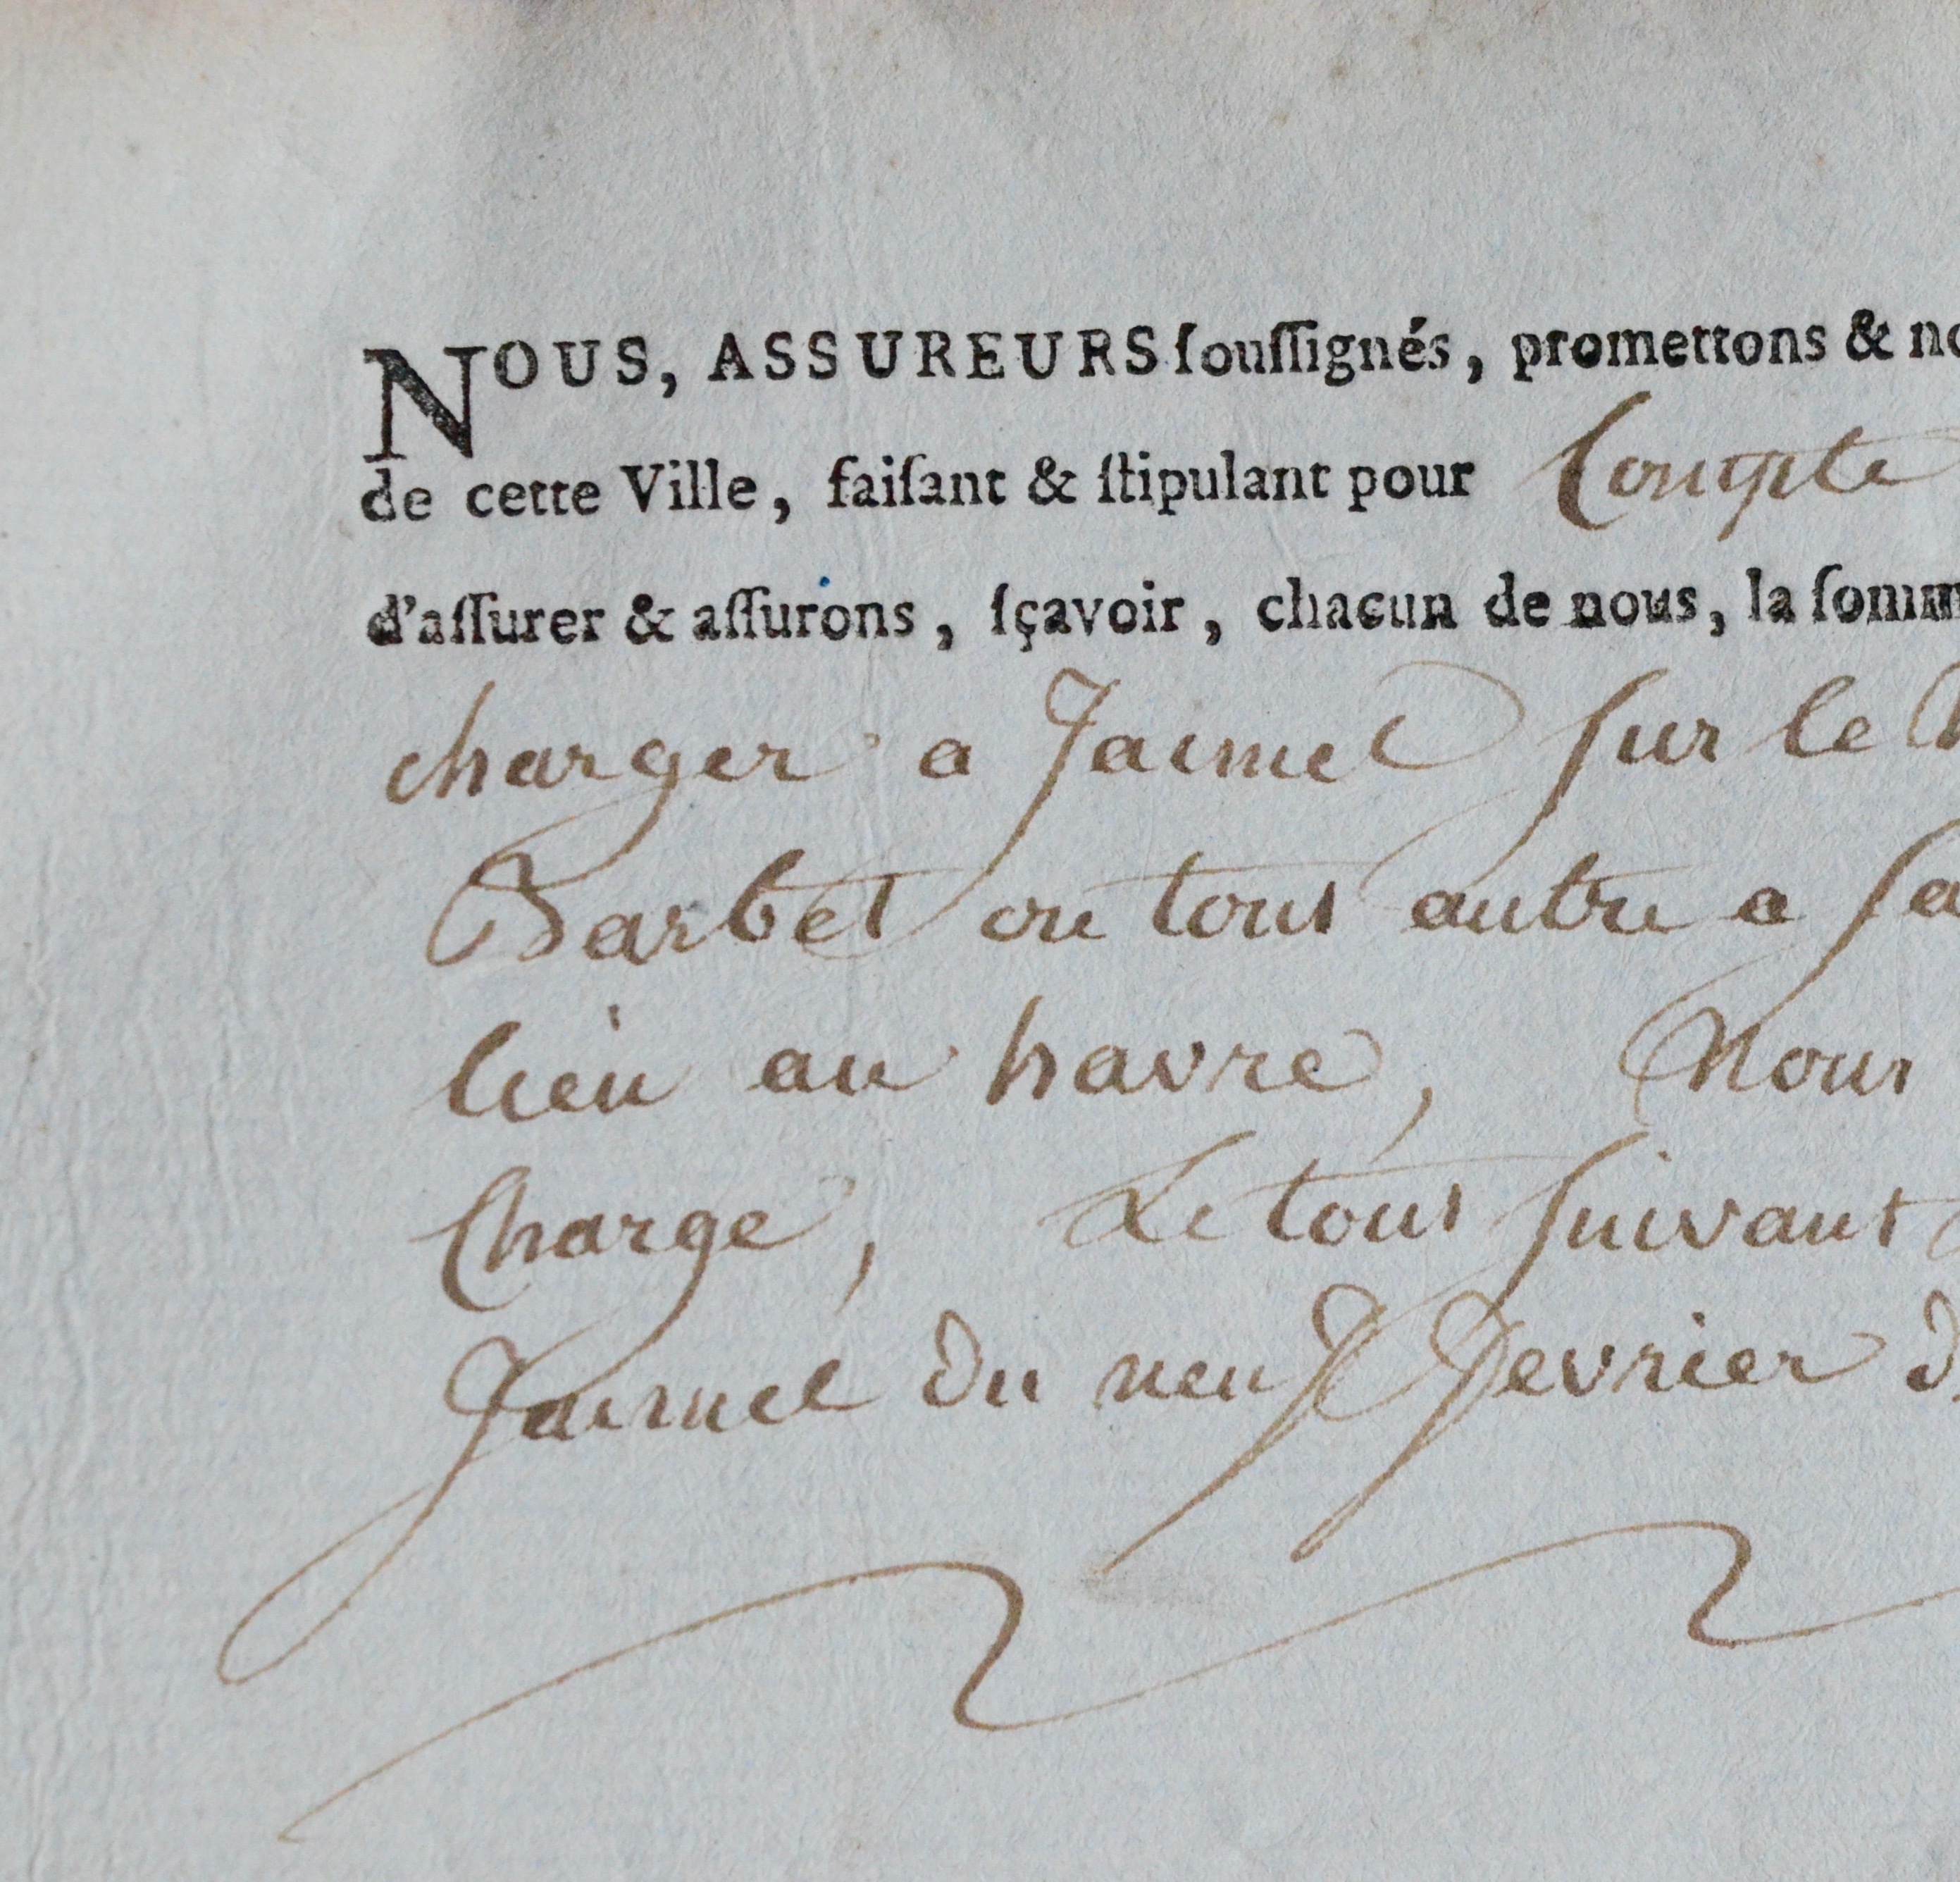 NOUS, ASSUREURS souſſignés, promettons & no
de cette Ville, faiſant & ſtipulant pour Compte
d'aſſurer & aſſurons, ſçavoir, chacun de nous, la ſomm
charger a Jacmel sur le
Barbet ou tous autre a sa
lieu au havre, Nous
Charge, Le tous suivant
Jacmel du neuf fevrier d